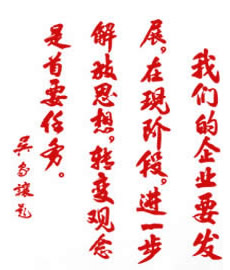 我们的企业要发
展，在现阶段，进一步
解放思想，转变观念
是首要任务。